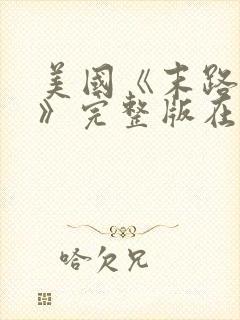 美國《末路
》完整版在
哈欠兄